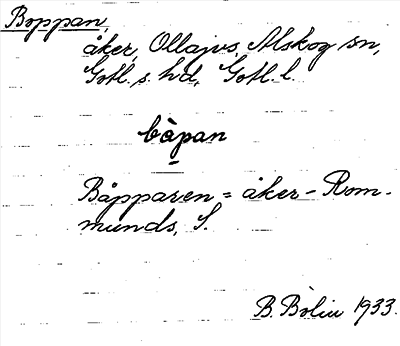 Boppan,
åker, Ollajvs, Alskog sn,
Gotl. s. hd, Gotl. l.
bàpan
Båpparen = åker - Rom-
munds, S.
B. Bolin 1933.